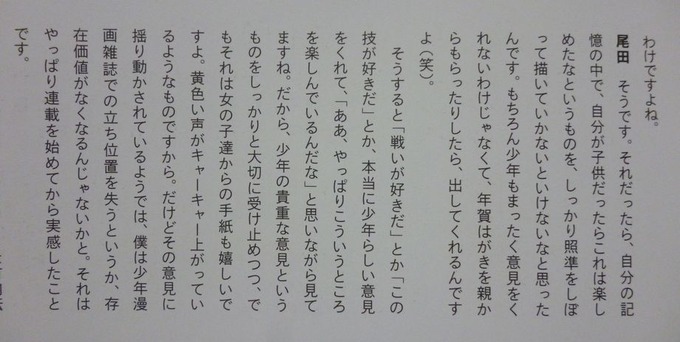 わけですよね。
尾田　そうです。それだったら、自分の記
憶の中で、自分が子供だったらこれは楽し
めたなというものを、しっかり照準をしぼ
って描いていかないといけないなと思った
んです。もちろん少年もまったく意見をく
れないわけじゃなくて、年賀はがきを親か
らもらったりしたら、出してくれるんです
よ（笑）。
　そうすると「戦いが好きだ」とか「この
技が好きだ」とか、本当に少年らしい意見
をくれて、「ああ、やっぱりこういうところ
を楽しんでいるんだな」と思いながら見て
ますね。だから、少年の貴重な意見という
ものをしっかりと大切に受け止めつつ、で
もそれは女の子達からの手紙も嬉しいで
すよ。黄色い声がキャーキャー上がってい
るようなものですから。だけどその意見に
揺り動かされているようでは、僕は少年漫
画雑誌での立ち位置を失うというか、存
在価値がなくなるんじゃないかと。それは
やっぱり連載を始めてから実感したこと
です。